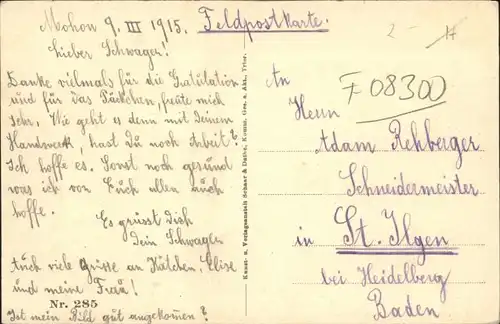 Mohon 9. III 1915.
Feldpostkarte.
Lieber Schwager!
Danke vilmals für die Gratulation
und für das Päckchen, freute mich
sehr. Wie geht es denn mit Deinem
Handwerk, hast Du noch Arbeit?
Ich hoffe es. Sonst noch gesund
was ich von Euch allen auch
hoffe.
Es grüsst Dich
Dein Schwager
Auch viele Grüsse an Kätchen, Elise
und meine Frau!
Nr. 285
Ist mein Bild gut angekomen?
Kunst- u. Verlagsanstalt Schaar & Dathe, Komm. Ges. a. Akt., Trier.
An
F 08300
Herrn
Adam Rehberger
Schneidermeister
in St. Ilgen
bei Heidelberg
Baden